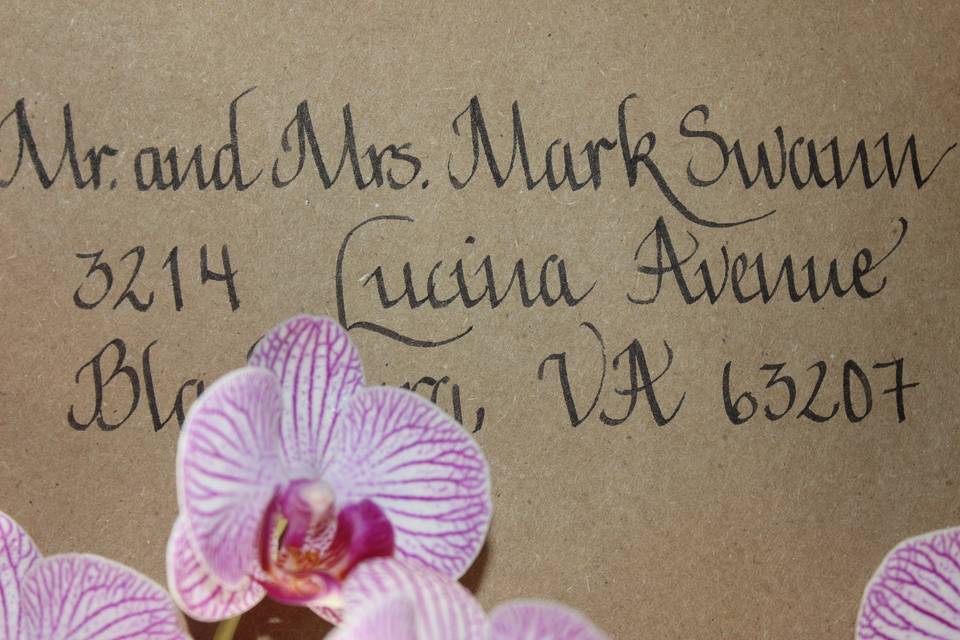 Mr. and Mrs. Mark Swann
3214 Lucina Avenue
VA 63207